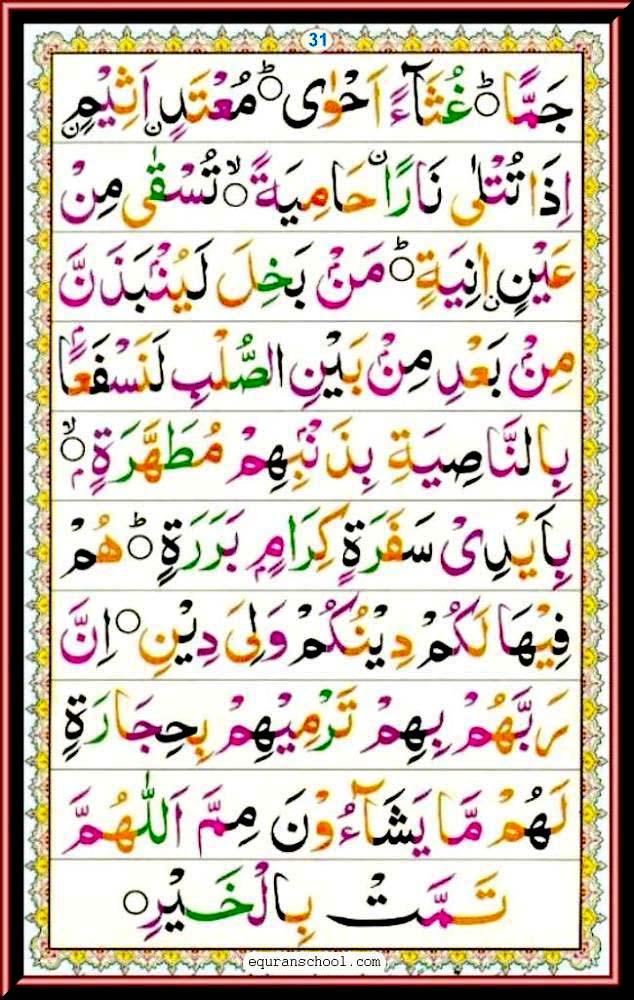 31
جَمًّا ؕ○ غُثَآءً اَحْوٰى ؕ○ مُعْتَدٍ اَثِيْمٍ
اِذَا تُتْلٰى نَارًا حَامِيَةً ۙ○ تُسْقٰى مِنْ
عَيْنٍ اٰنِيَةٍ ؕ○ مَنْۢ بَخِلَ لَيُنْۢبَذَنَّ
مِنْۢ بَعْدِ مِنْۢ بَيْنِ الصُّلْبِ لَنَسْفَعًۢا
بِالنَّاصِيَةِ بِذَنْۢبِهِمْ مُطَهَّرَةٍۭ ۙ○
بِاَيْدِىْ سَفَرَةٍ كِرَامٍۭ بَرَرَةٍ ؕ○ هُمْ
فِيْهَا لَكُمْ دِيْنُكُمْ وَلِىَ دِيْنِ ○ اِنَّ
رَبَّهُمْ بِهِمْ تَرْمِيْهِمْ بِحِجَارَةٍ
لَهُمْ مَّا يَشَآءُوْنَ مِمَّ اَللّٰهُمَّ
تَمَّتْ بِالْخَيْرِ ○
equranschool.com